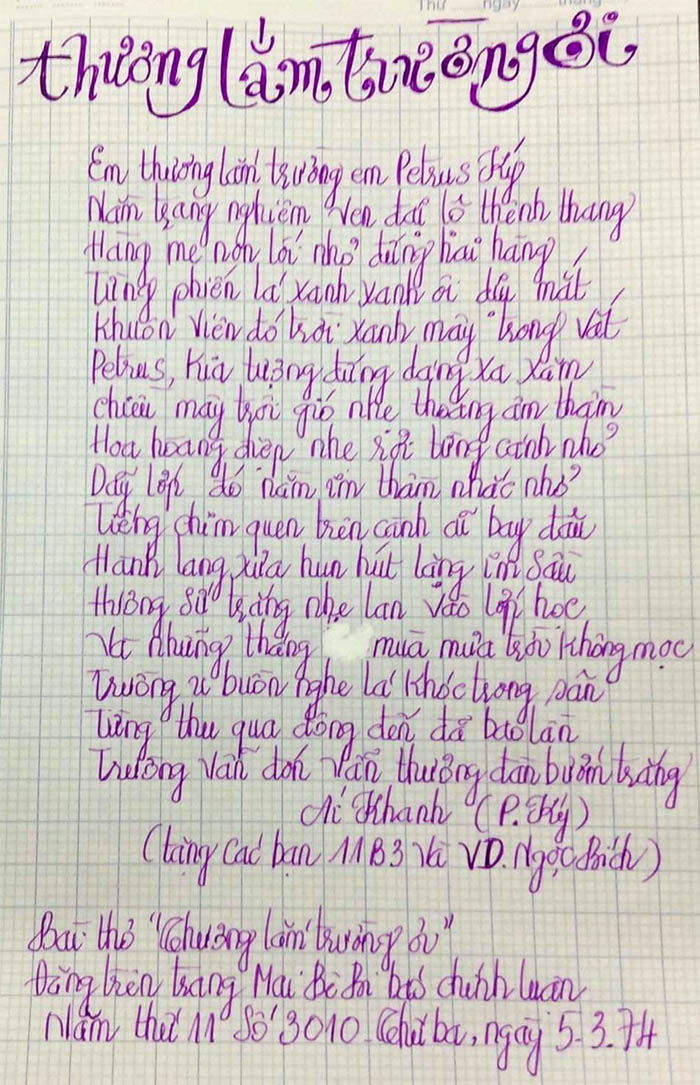 Thứ ngày tháng
Thương lắm trường ơi
Em thương lắm trường em Petrus Ký
Nằm trang nghiêm ven đại lộ thênh thang
Hàng me non lối nhỏ đứng hai hàng
Từng phiến lá xanh xanh ôi đẫy mắt
Khuôn viên đó trời xanh mây trong vắt
Petrus, kia tượng đứng dáng xa xăm
Chiều mây trôi gió nhẹ thoáng âm thầm
Hoa hoàng điệp nhẹ rơi từng cánh nhỏ
Dãy lớp đó nằm im thầm nhắc nhở
Tiếng chim quen trên cành cũ bay đâu
Hành lang xưa hun hút lặng im sâu
Hương sứ trắng nhẹ lan vào lớp học
Và những tháng mùa mưa trời không mọc
Trường u buồn nghe lá khóc trong sân
Từng thu qua đông đến đã bao lần
Trường vẫn đón vẫn thương đàn bướm trắng
Ái Khanh (P. Ký)
(tặng các bạn 11B3 và VD. Ngọc Bích)
Bài thơ "Thương lắm trường ơi"
Đăng trên trang Mai Bê Bi báo chính luận
Năm thứ 11 Số 3010. Thứ ba, ngày 5.3.74